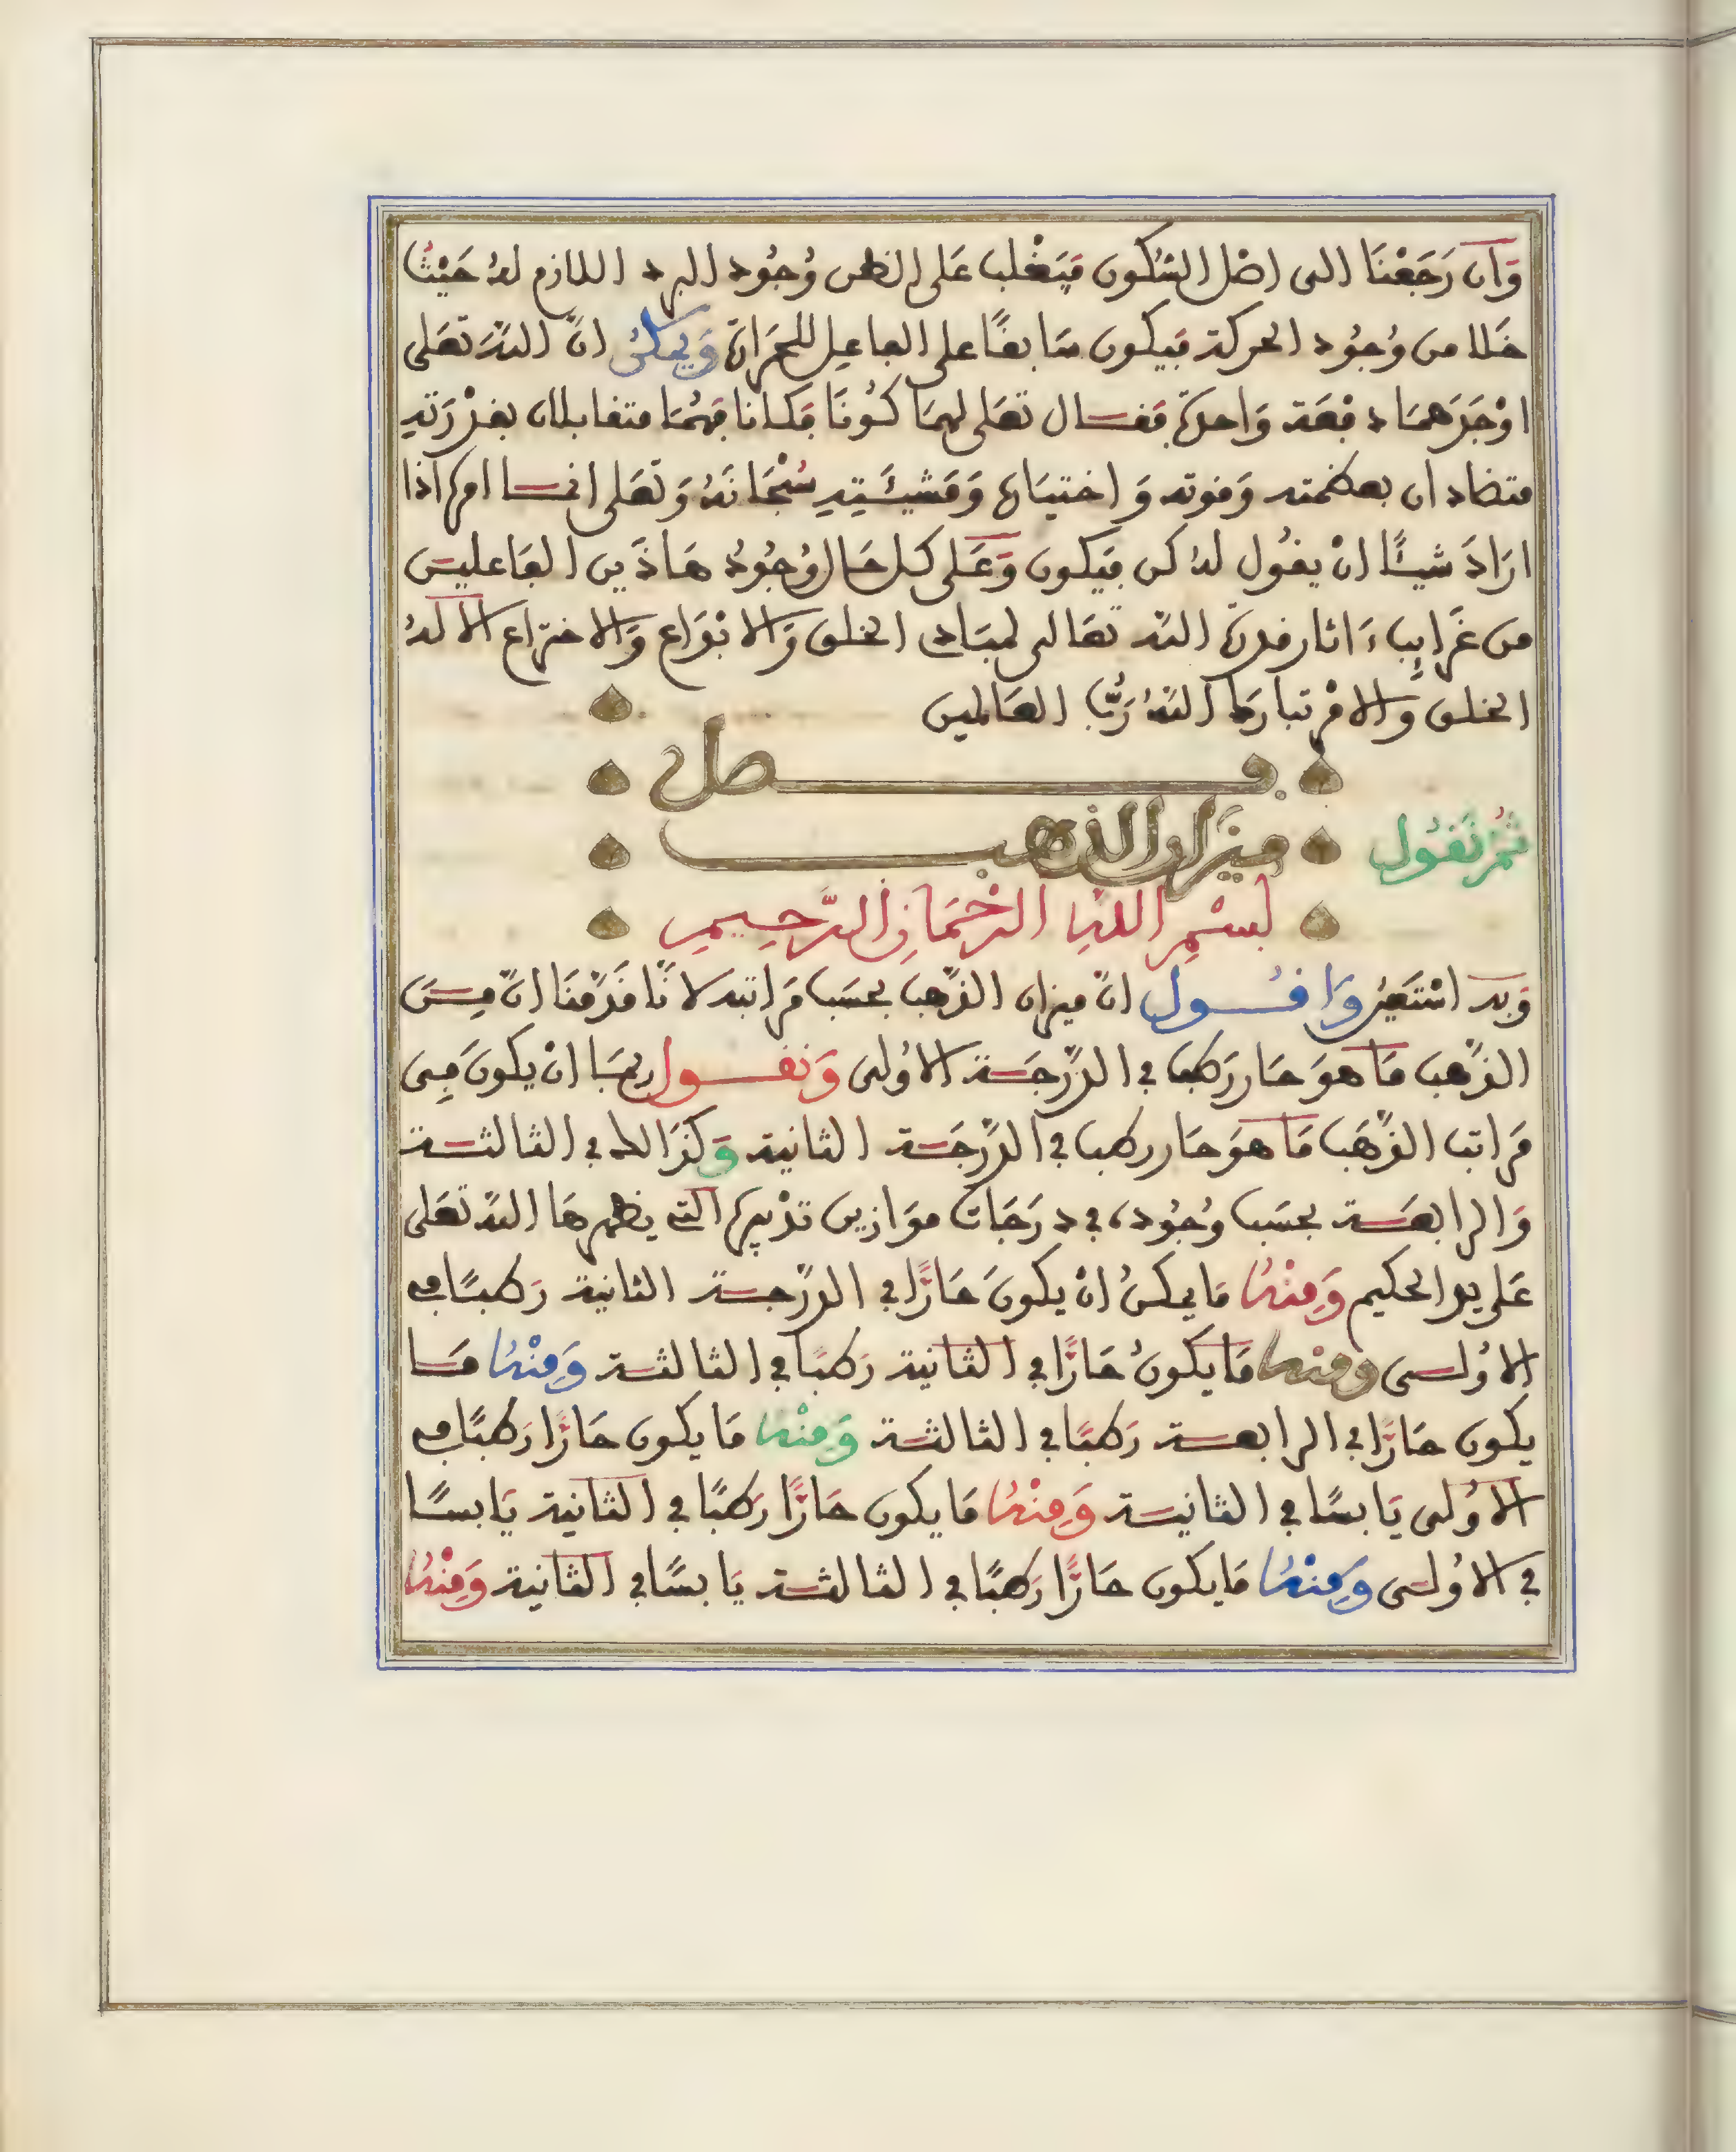 وَان رَجَعْنَا الى اصْل السُّكون فيَغْلب عَلى الظن وُجُود البرد اللازم لهُ حَيْثُ
خَلا من وُجُود الحركة فيكون سَابقًا على الفاعل للحَرَارة وَيمكنُ انّ اللّهَ تعَلى
اوْجَدَهمَا دفعَة وَاحدَة فقال تعَلى لهمَا كُونَا فكانا فهُمَا متقابلان بقدْرَته
متضادان بحكمته وَقوته وَاختيَاره وَمَشيئَتِهِ سُبْحَانَهُ وَتعَلى انما امره اذا
ارَادَ شيئًا انْ يقُول لهُ كن فيَكون وَعَلى كل حَال وُجُودُ هَاذَين الفَاعلين
من غَرايِب ءَاثار قدرة اللّه تعَالى لمبَادى الخلق وَالابْدَاع وَالاختراع الا لهُ
الخلق وَالامْر تبارك اللّهُ رَبُّ العَالمين
فصل
ثمّ نَقُول ميزَان الذهب
بسْمِ اللهِ الرَّحْمَانِ الرَّحِيمِ
وَبه اسْتَعين وَاقُول انّ ميزان الذّهب بحسَب مَراتبه لانَّا قدّمْنَا انّ مِنَ
الذّهب مَا هوَ حَار رَطب في الدّرجَة الاوُلى وَنقول ربمَا انْ يكونَ مِن
مَراتب الذّهَب مَا هوَ حَار رطب في الدّرجَة الثانية وَكذَالك في الثالثة
وَالرابعَة بحسَب وُجُوده في دَرَجَات موَازين تدْبيره التي يظهرهَا اللّه تعَلى
عَلى يد الحكيم وَمِنْهُ مَا يمكنُ انْ يكونَ حَارًّا في الدّرجة الثانية رَطبًا في
الاوُلى ومنه مَا يكونُ حَارًّا في الثانية رَطبًا في الثالثة وَمِنْهُ مَا
يكون حَارًّا في الرابعة رَطبًا في الثالثة وَمِنْهُ مَا يكون حَارًّا رَطبًا في
الاوُلى يَابسًا في الثانية وَمِنْهُ مَا يكون حَارًّا رَطبًا في الثانية يَابسًا
في الاوُلى وَمِنْهُ مَا يكون حَارًّا رَطبًا في الثالثة يَابسًا في الثانية وَمِنْهُ